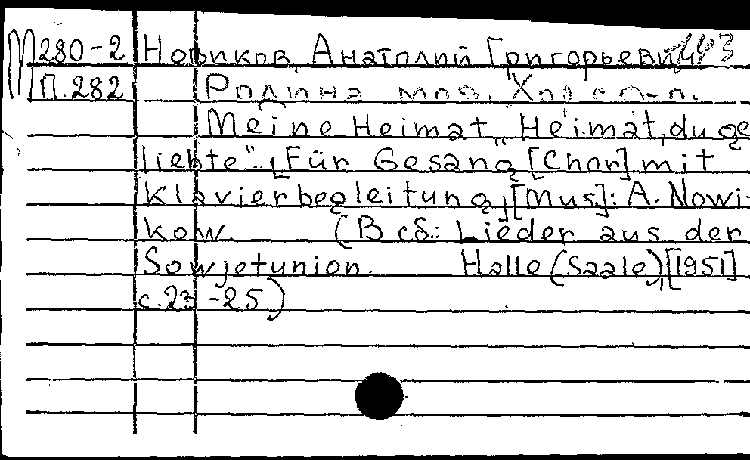 М280-2 Новиков, Анатолий Григорьевич
П.282 Родина моя. Хор
Meine Heimat „Heimat, du ge
liebte". Für Gesang [Chor] mit
Klavierbegleitung, [Mus]: A. Nowi-
kow. (В сб.: Lieder aus der
Sowjetunion. Halle (Saale), [1951]
с. 23-25)